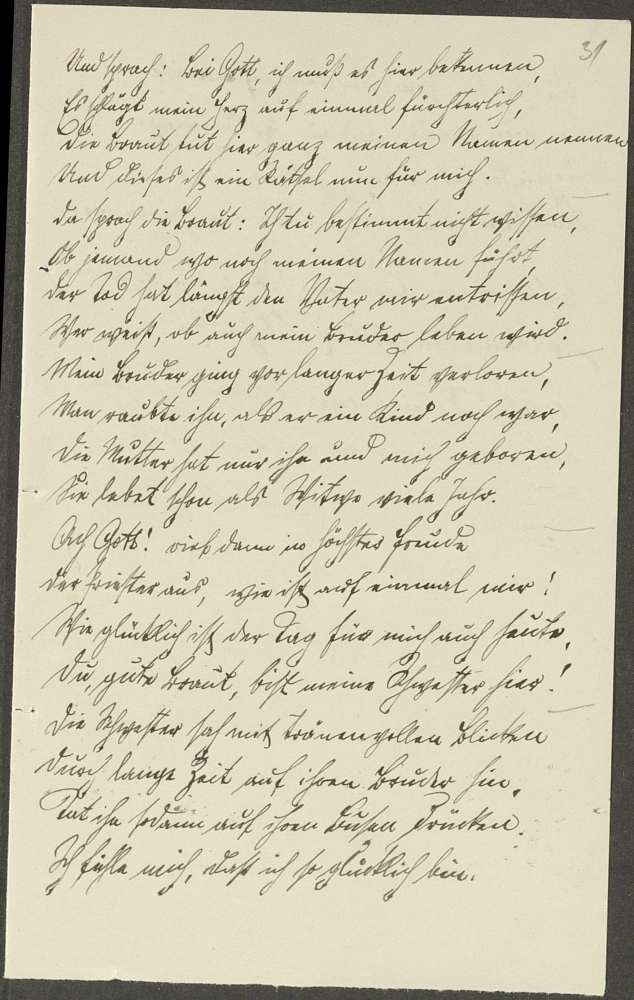 31
Und sprach: Bei Gott, ich muß es hier bekennen,
Es schlägt mein Herz auf einmal fürchterlich,
Die Braut tut hier ganz meinen Namen nennen
Und dieses ist ein Rätsel nun für mich.
Da sprach die Braut: Ich tu bestimmt nicht wissen,
Ob jemand wo noch meinen Namen führt,
Der Tod hat längst den Vater mir entrissen,
Wer weiß, ob auch mein Bruder leben wird.
Mein Bruder ging vor langer Zeit verloren,
Man raubte ihn, als er ein Kind noch war,
Die Mutter hat nur ihn und mich geboren,
Sie lebet schon als Witwe viele Jahr.
Ach Gott! rief dann in höchster Freude
Der Priester aus, wie ist auf einmal mir!
Wie glücklich ist der Tag für mich auch heute,
Du, gute Braut, bist meine Schwester hier!
Die Schwester sah mit tränenvollen Blicken
Durch lange Zeit auf ihren Bruder hin,
Tat ihn sodann auf ihren Busen drücken.
Ich fühle mich, daß ich so glücklich bin.